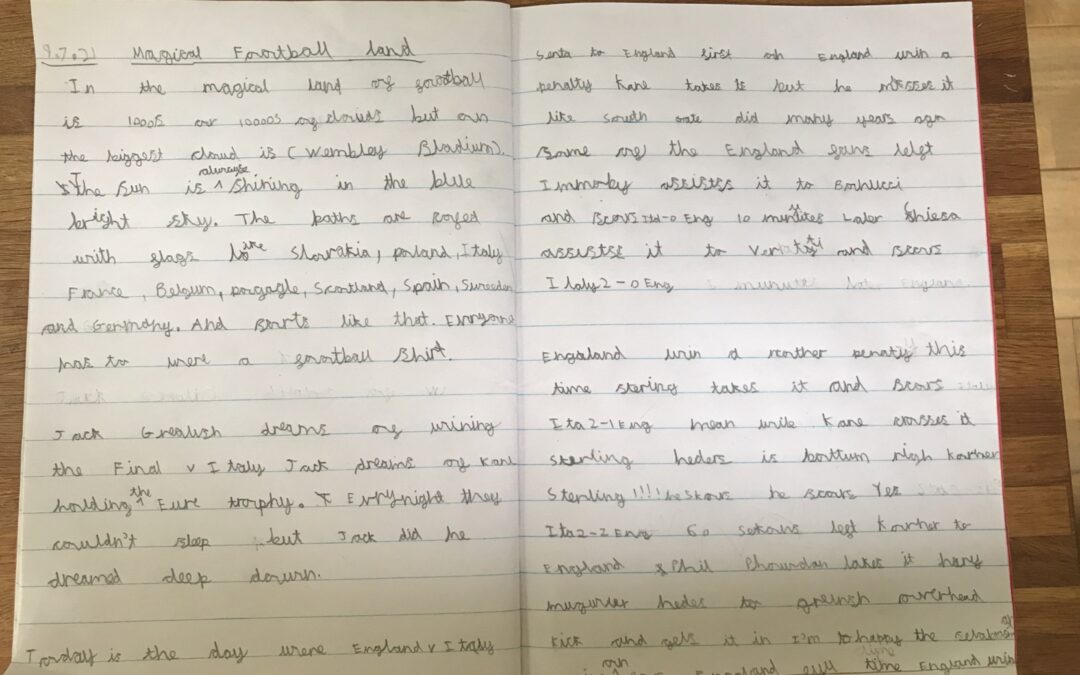 9.7.21 Magical Foootball land
In the magical land of football
is 1000s or 10000s of clouds but on
the biggest cloud is (Wembley Stadium).
The Sun is always shining in the blue
bright sky. The paths are rofed
with flags like Slovakia, poland, Italy
France, Belgum, porgagle, Scontland, Spain, Sureeden
and Germany. And sorts like that. Evryone
has to were a football Shirt.
Jack Grealish dreams of wining
the Final v Italy Jack dreams of Kane
holding the Eure trophy. Evrynight they
couldn't sleep but Jack did he
dreamed deep down.
Today is the day were England v Italy
Senta to England first England win a
penalty Kane takes it but he misses it
like South Gate did many years ago
Some of the England fans left
Immoby assistes it to Bonucci
and scors Ita1-0 Eng 10 munites Later Chiesa
assistse it to and scors
Italy2-0Eng
England win a conther penalty this
time stering takes it and scors
Ita2-1Eng mean wile Kane crosses it
sterling heders is bottum righ korner
Sterling!!!! he Skors he scors Yes
Ita2-2Eng 60 sekons left Korner to
England Phil Phowdan takes it hary
muguier hedes to greinsh overhead
kick and gets it in I'm to happy the
on England time England win